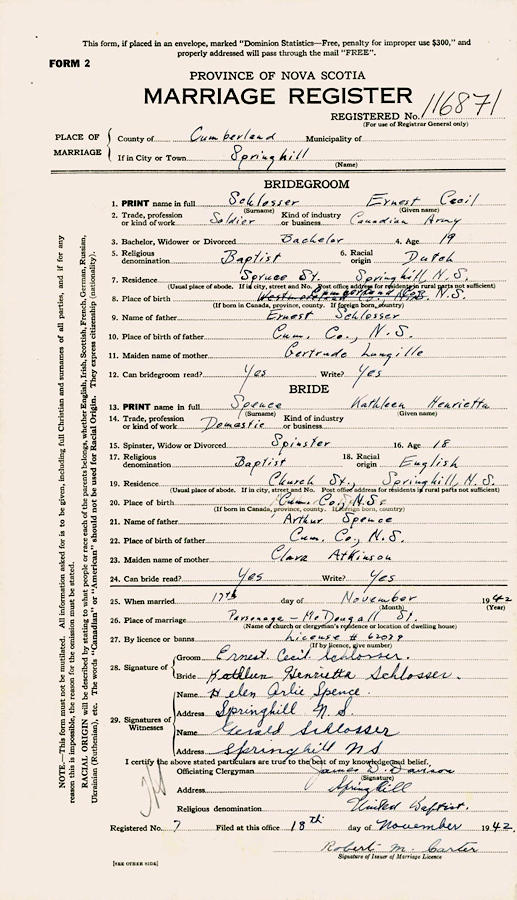 This form, if placed in an envelope, marked "Dominion Statistics—Free, penalty for improper use $300," and
properly addressed will pass through the mail "FREE".
FORM 2
PROVINCE OF NOVA SCOTIA
MARRIAGE REGISTER
REGISTERED No. 116871
(For use of Registrar General only)
PLACE OF MARRIAGE
County of Cumberland Municipality of
If in City or Town Springhill
(Name)
BRIDEGROOM
1. PRINT name in full Schlosser Ernest Cecil
(Surname) (Given name)
2. Trade, profession or kind of work Soldier Kind of industry or business Canadian Army
3. Bachelor, Widower or Divorced Bachelor 4. Age 19
5. Religious denomination Baptist 6. Racial origin Dutch
7. Residence Spruce St. Springhill, N.S.
(Usual place of abode. If in city, street and No. Post office address for residents in rural parts not sufficient)
8. Place of birth Cumberland Co. N.S.
(If born in Canada, province, county. If foreign born, country)
9. Name of father Ernest Schlosser
10. Place of birth of father Cum. Co., N.S.
11. Maiden name of mother Gertrude Langille
12. Can bridegroom read? Yes Write? Yes
BRIDE
13. PRINT name in full Spence Kathleen Henrietta
(Surname) (Given name)
14. Trade, profession or kind of work Domestic Kind of industry or business
15. Spinster, Widow or Divorced Spinster 16. Age 18
17. Religious denomination Baptist 18. Racial origin English
19. Residence Church St., Springhill, N.S.
(Usual place of abode. If in city, street and No. Post office address for residents in rural parts not sufficient)
20. Place of birth Cum. Co., N.S.
(If born in Canada, province, county. If foreign born, country)
21. Name of father Arthur Spence
22. Place of birth of father Cum. Co., N.S.
23. Maiden name of mother Clara Atkinson
24. Can bride read? Yes Write? Yes
25. When married 17th day of November 1942
(Month) (Year)
26. Place of marriage Parsonage - McDougall St.
(Name of church or clergyman's residence or location of dwelling house)
27. By licence or banns License # 62099
(If by licence, give number)
28. Signature of
Groom Ernest Cecil Schlosser.
Bride Kathleen Henrietta Schlosser.
29. Signatures of Witnesses
Name Helen Arlie Spence.
Address Springhill N.S.
Name Gerald Schlosser
Address Springhill NS
I certify the above stated particulars are true to the best of my knowledge and belief,
Officiating Clergyman James D. Davison
(Signature)
Address Springhill
Religious denomination United Baptist.
Registered No. 7 Filed at this office 18th day of November 1942.
Robert M. Carter
Signature of Issuer of Marriage Licence
[SEE OTHER SIDE]
NOTE.—This form must not be mutilated. All information asked for is to be given, including full Christian and surnames of all parties, and if for any
reason this is impossible, the reason for the omission must be stated.
RACIAL ORIGIN will be described by stating to what people or race each of the parents belongs, whether English, Irish, Scottish, French, German, Russian,
Ukrainian (Ruthenian), etc. The words "Canadian" or "American" should not be used for Racial Origin. They express citizenship (nationality).